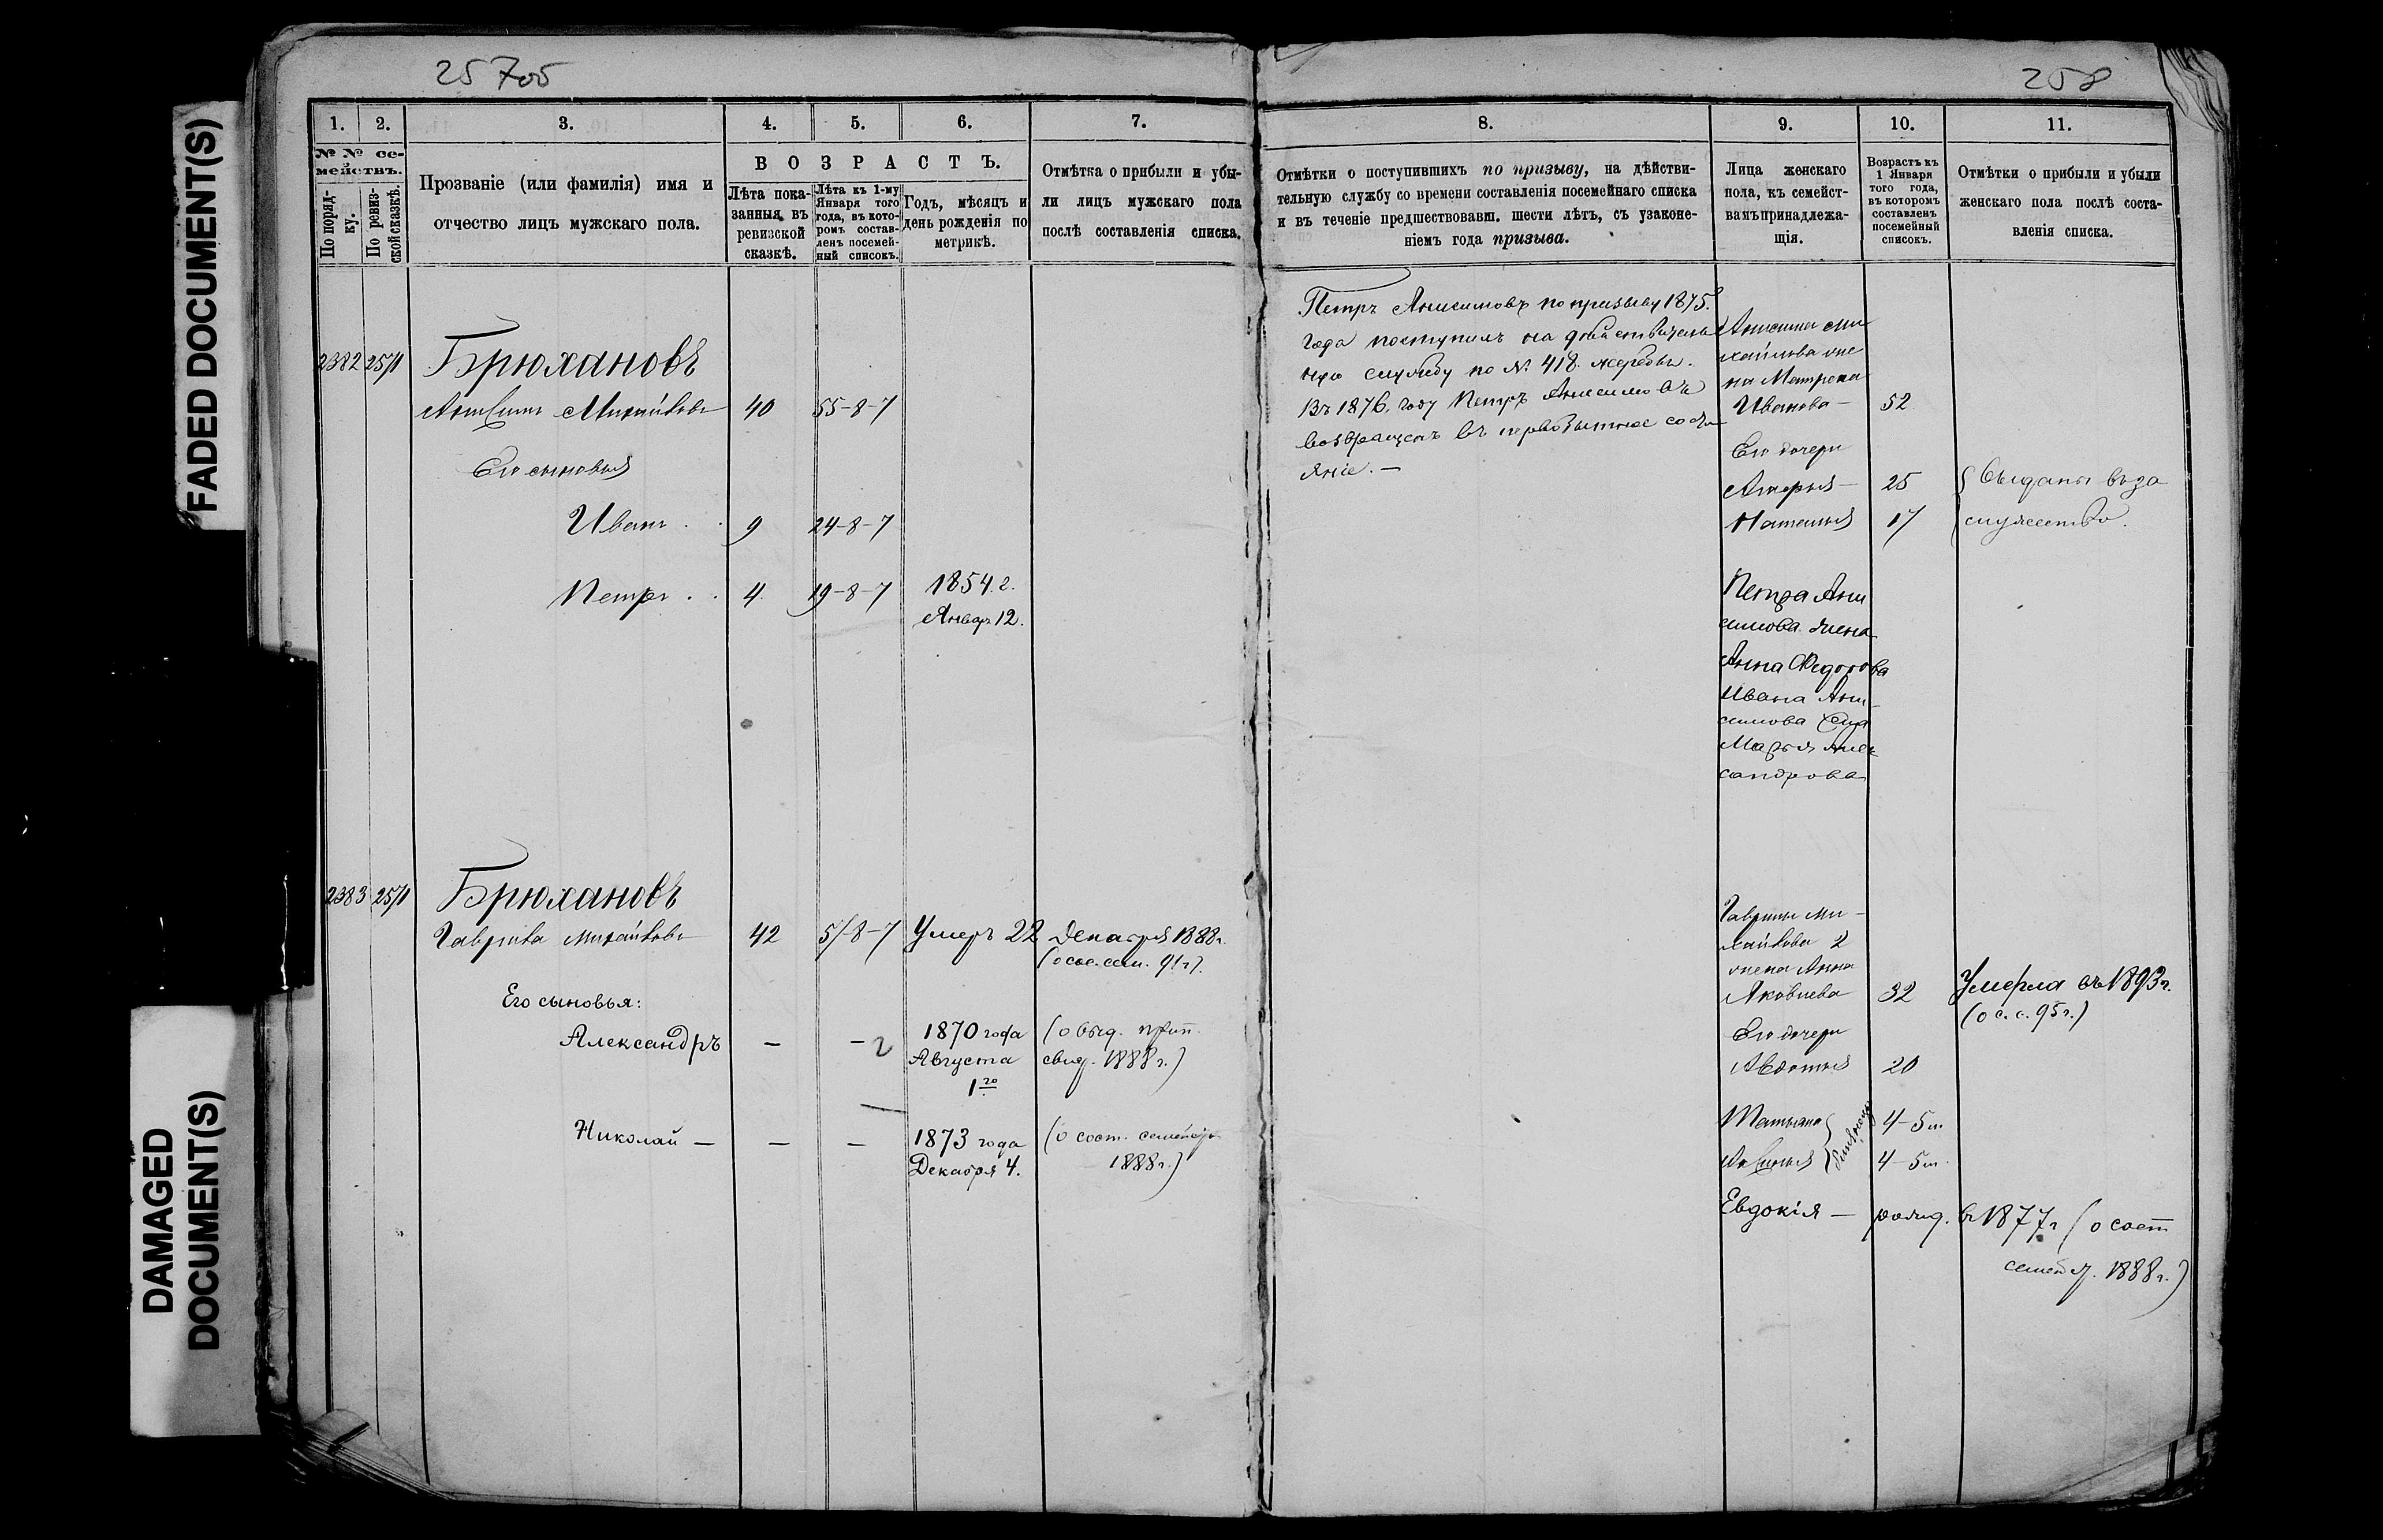 FADED DOCUMENT(S)
DAMAGED
DOCUMENT(S)
257об
1. 2. 3. 4. 5. 6. 7.
№ № се-
мействъ.
По поряд-
ку.
По ревиз-
ской сказкѣ.
Прозваніе (или фамилія) имя и
отчество лицъ мужскаго пола.
ВОЗРАСТЪ.
Лѣта пока-
занныя въ
ревизской
сказкѣ.
Лѣта къ 1-му
Января того
года, въ кото-
ромъ состав-
ленъ посемей-
ный списокъ.
Годъ, мѣсяцъ и
день рожденія по
метрикѣ.
Отмѣтка о прибыли и убы-
ли лицъ мужскаго пола
послѣ составленія списка.
2382 2571 Брюхановъ
Анисимъ Михайловъ 40 55-8-7
Его сыновья
Иванъ 9 24-8-7
Петръ 4 19-8-7 1854 г.
Январ 12.
2383 2571 Брюхановъ
Гаврила Михайловъ 42 51-8-7 Умеръ 22 Декабря 1888 г.
(о сос. сем. 91 г.)
Его сыновья:
Александръ — — 2 1870 года (о выд. прип.
Августа свид. 1888 г.)
1го
Николай — — — 1873 года (о сост. семейств
Декабря 4. 1888 г.)
258
8. 9. 10. 11.
Отмѣтки о поступившихъ по призыву, на дѣйстви-
тельную службу со времени составленія посемейнаго списка
и въ теченіе предшествовавш. шести лѣтъ, съ узаконе-
ніемъ года призыва.
Лица женскаго
пола, къ семейст-
вамъ принадлежа-
щія.
Возрастъ къ
1 Января
того года,
въ которомъ
составленъ
посемейный
списокъ.
Отмѣтки о прибыли и убыли
женскаго пола послѣ соста-
вленія списка.
Петръ Анисимовъ по призыву 1875.
года поступилъ на дѣйствитель
ную службу по № 418. жеребью.
Въ 1876. году Петръ Анисимовъ
возвращенъ въ первобытное состо
яніе. —
Анисима Ми
хайлова же
на Матрена
Иванова — 52
Его дочери
Марья — 25 { Выданы въ за
Наталья 17 { мужество.
Петра Ани
симова жена
Анна Федорова
Ивана Ани-
симова жена
Марья Алек-
сандрова
Гаврилы Ми-
хайлова 2
жена Анна
Яковлева 32 Умерла въ 1893 г.
(о с. с. 95 г.)
Его дочери
Авдотья 20
Татьяна 4-5 м.
Аксинья 4-5 м.
Евдокія — рожд. въ 1877 г (о сост
семейств. 1888 г.)